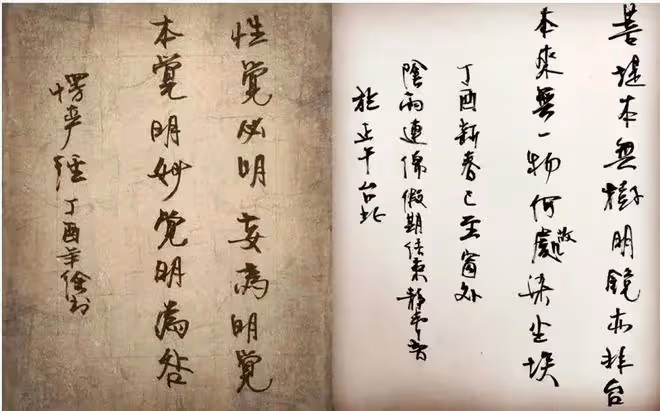 菩提本無樹明鏡亦非台
本來無一物何處染尘埃
丁酉新春已至窗外
陰雨連綿假期结束静
於正午台北
性覺必明妄為明覺
本覺明妙覺明為咎
楞严經丁酉书